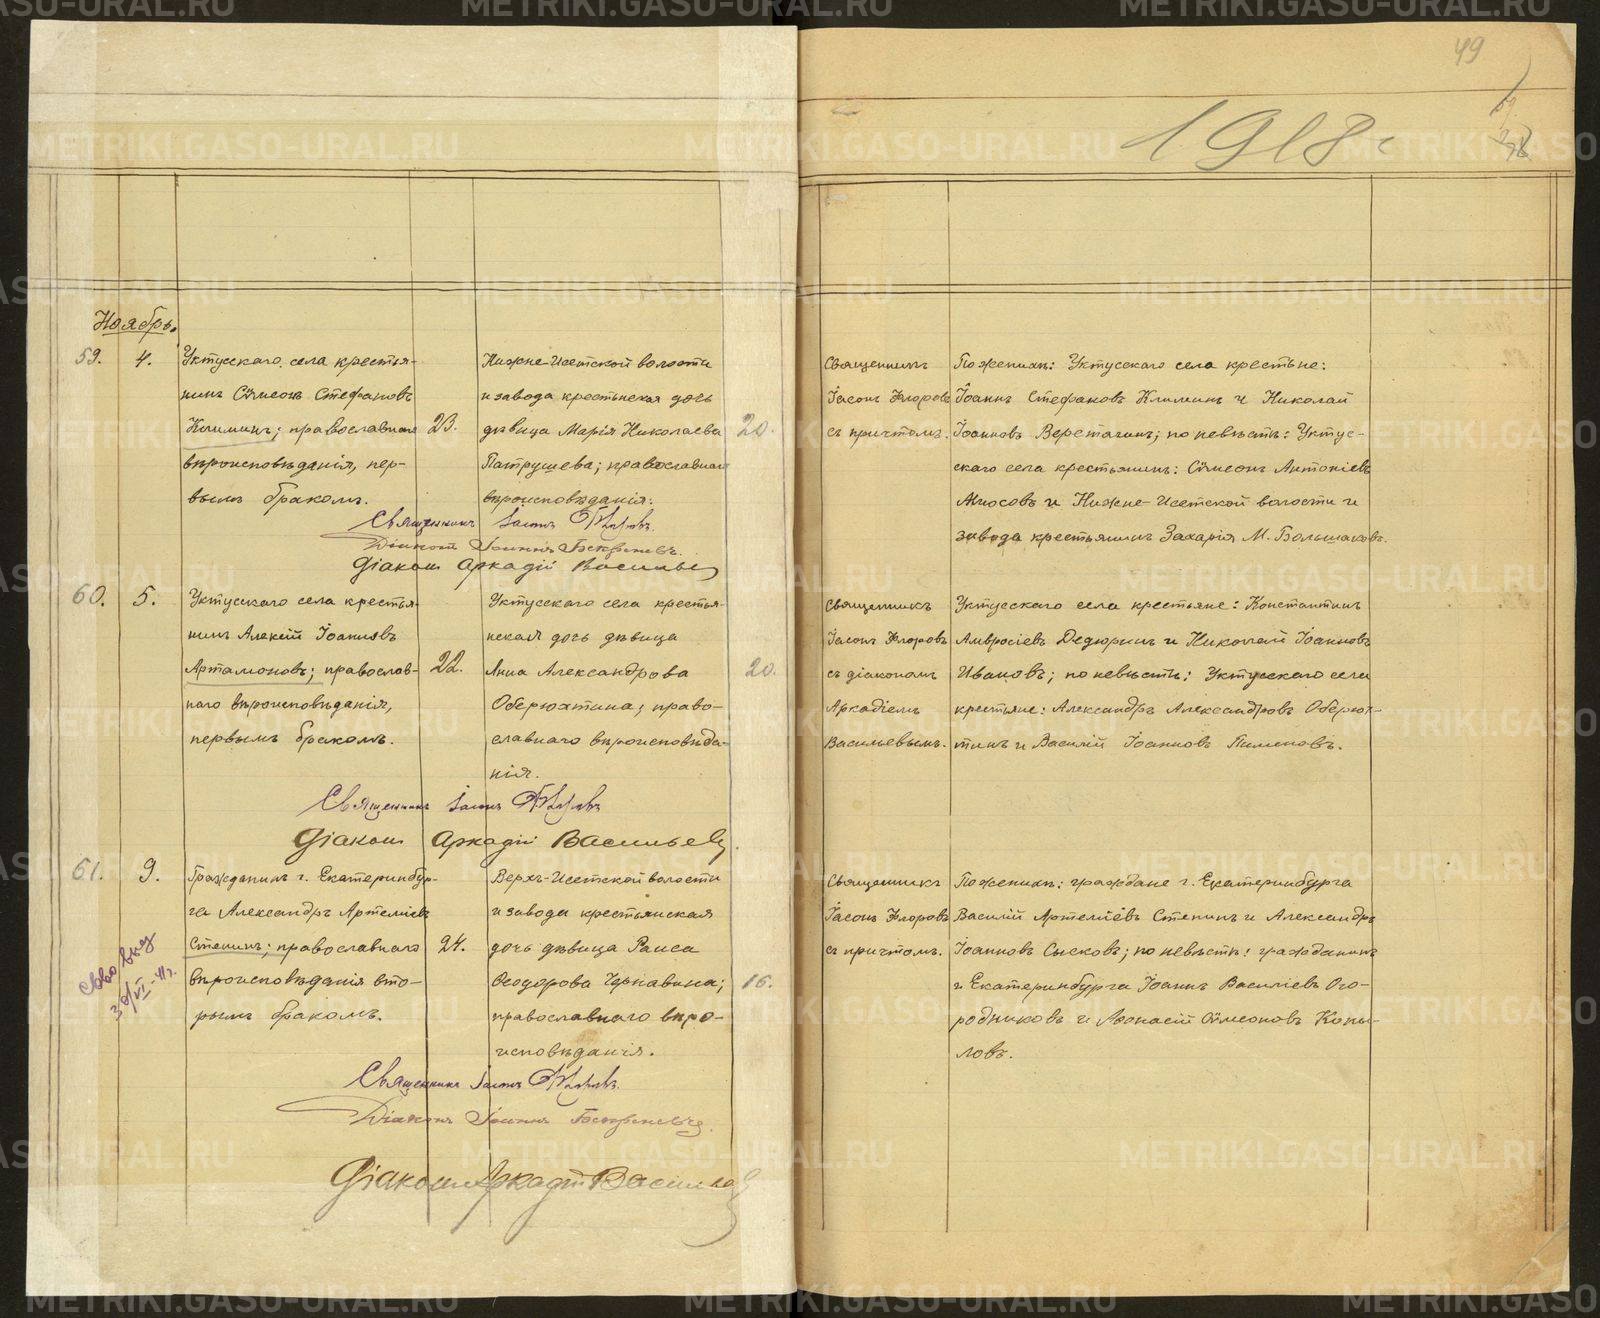 49
1918 г
Ноябрь.
59.
4.
Уктусскаго села крестья-
нинъ Сѵмеонъ Стефановъ
Климинъ; православнаго
вѣроисповѣданія, пер-
вымъ бракомъ.
23.
Нижне-Исетской волости
и завода крестьянская дочь
дѣвица Марія Николаева
Патрушева; православнаго
вѣроисповѣданія.
20.
Священникъ
Іасонъ Флоровъ
съ причтомъ.
По женихѣ: Уктусскаго села крестьяне:
Іоаннъ Стефановъ Климинъ и Николай
Іоанновъ Веретагинъ; по невѣстѣ: Уктус-
скаго села крестьянинъ: Сѵмеонъ Антоніевъ
и Нижне-Исетской волости и
завода крестьянинъ Захарія М. Большаковъ.
Священникъ Іасонъ Флоровъ.
Діаконъ Іоаннъ
Діаконъ Аркадій Васильевъ
60.
5.
Уктусскаго села крестья-
нинъ Алексій Іоанновъ
Артамоновъ; православ-
наго вѣроисповѣданія,
первымъ бракомъ.
22.
Уктусскаго села крестья-
нская дочь дѣвица
Анна Александрова
Оберюхтина; право-
славнаго вѣроисповѣда-
нія.
20.
Священникъ
Іасонъ Флоровъ
съ діакономъ
Аркадіемъ
Васильевымъ.
Уктусскаго села крестьяне: Константинъ
Амвросіевъ Дедюринъ и Николай Іоанновъ
Ивановъ; по невѣстѣ: Уктусскаго села
крестьяне: Александръ Александровъ Оберюх-
тинъ и Василій Іоанновъ Пименовъ.
Священникъ Іасонъ Флоровъ
Діаконъ Аркадій Васильевъ
61.
9.
Гражданинъ г. Екатеринбур-
га Александръ Артеміевъ
Степинъ; православнаго
вѣроисповѣданія вто-
рымъ бракомъ.
24.
Верхъ-Исетской волости
и завода крестьянская
дочь дѣвица Раиса
Ѳеодорова Чернавина;
православнаго вѣро-
исповѣданія.
16.
Священникъ
Іасонъ Флоровъ
съ причтомъ.
По женихѣ: граждане г. Екатеринбурга
Василій Артеміевъ Степинъ и Александръ
Іоанновъ Сысковъ; по невѣстѣ: гражданинъ
г. Екатеринбурга Іоаннъ Василіевъ Ого-
родниковъ и Аѳонасій Сѵмеоновъ Копы-
ловъ.
Священникъ Іасонъ Флоровъ.
Діаконъ Іоаннъ
Діаконъ Аркадій Васильевъ
METRIKI.GASO-URAL.RU